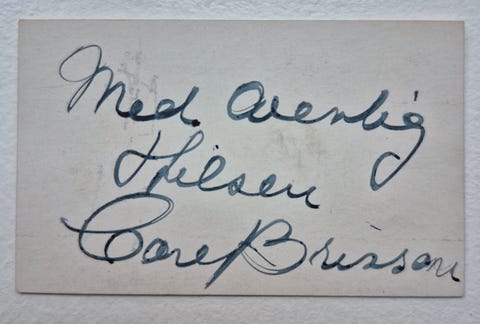 Med. Venlig
Hilsen
Carl Brisson